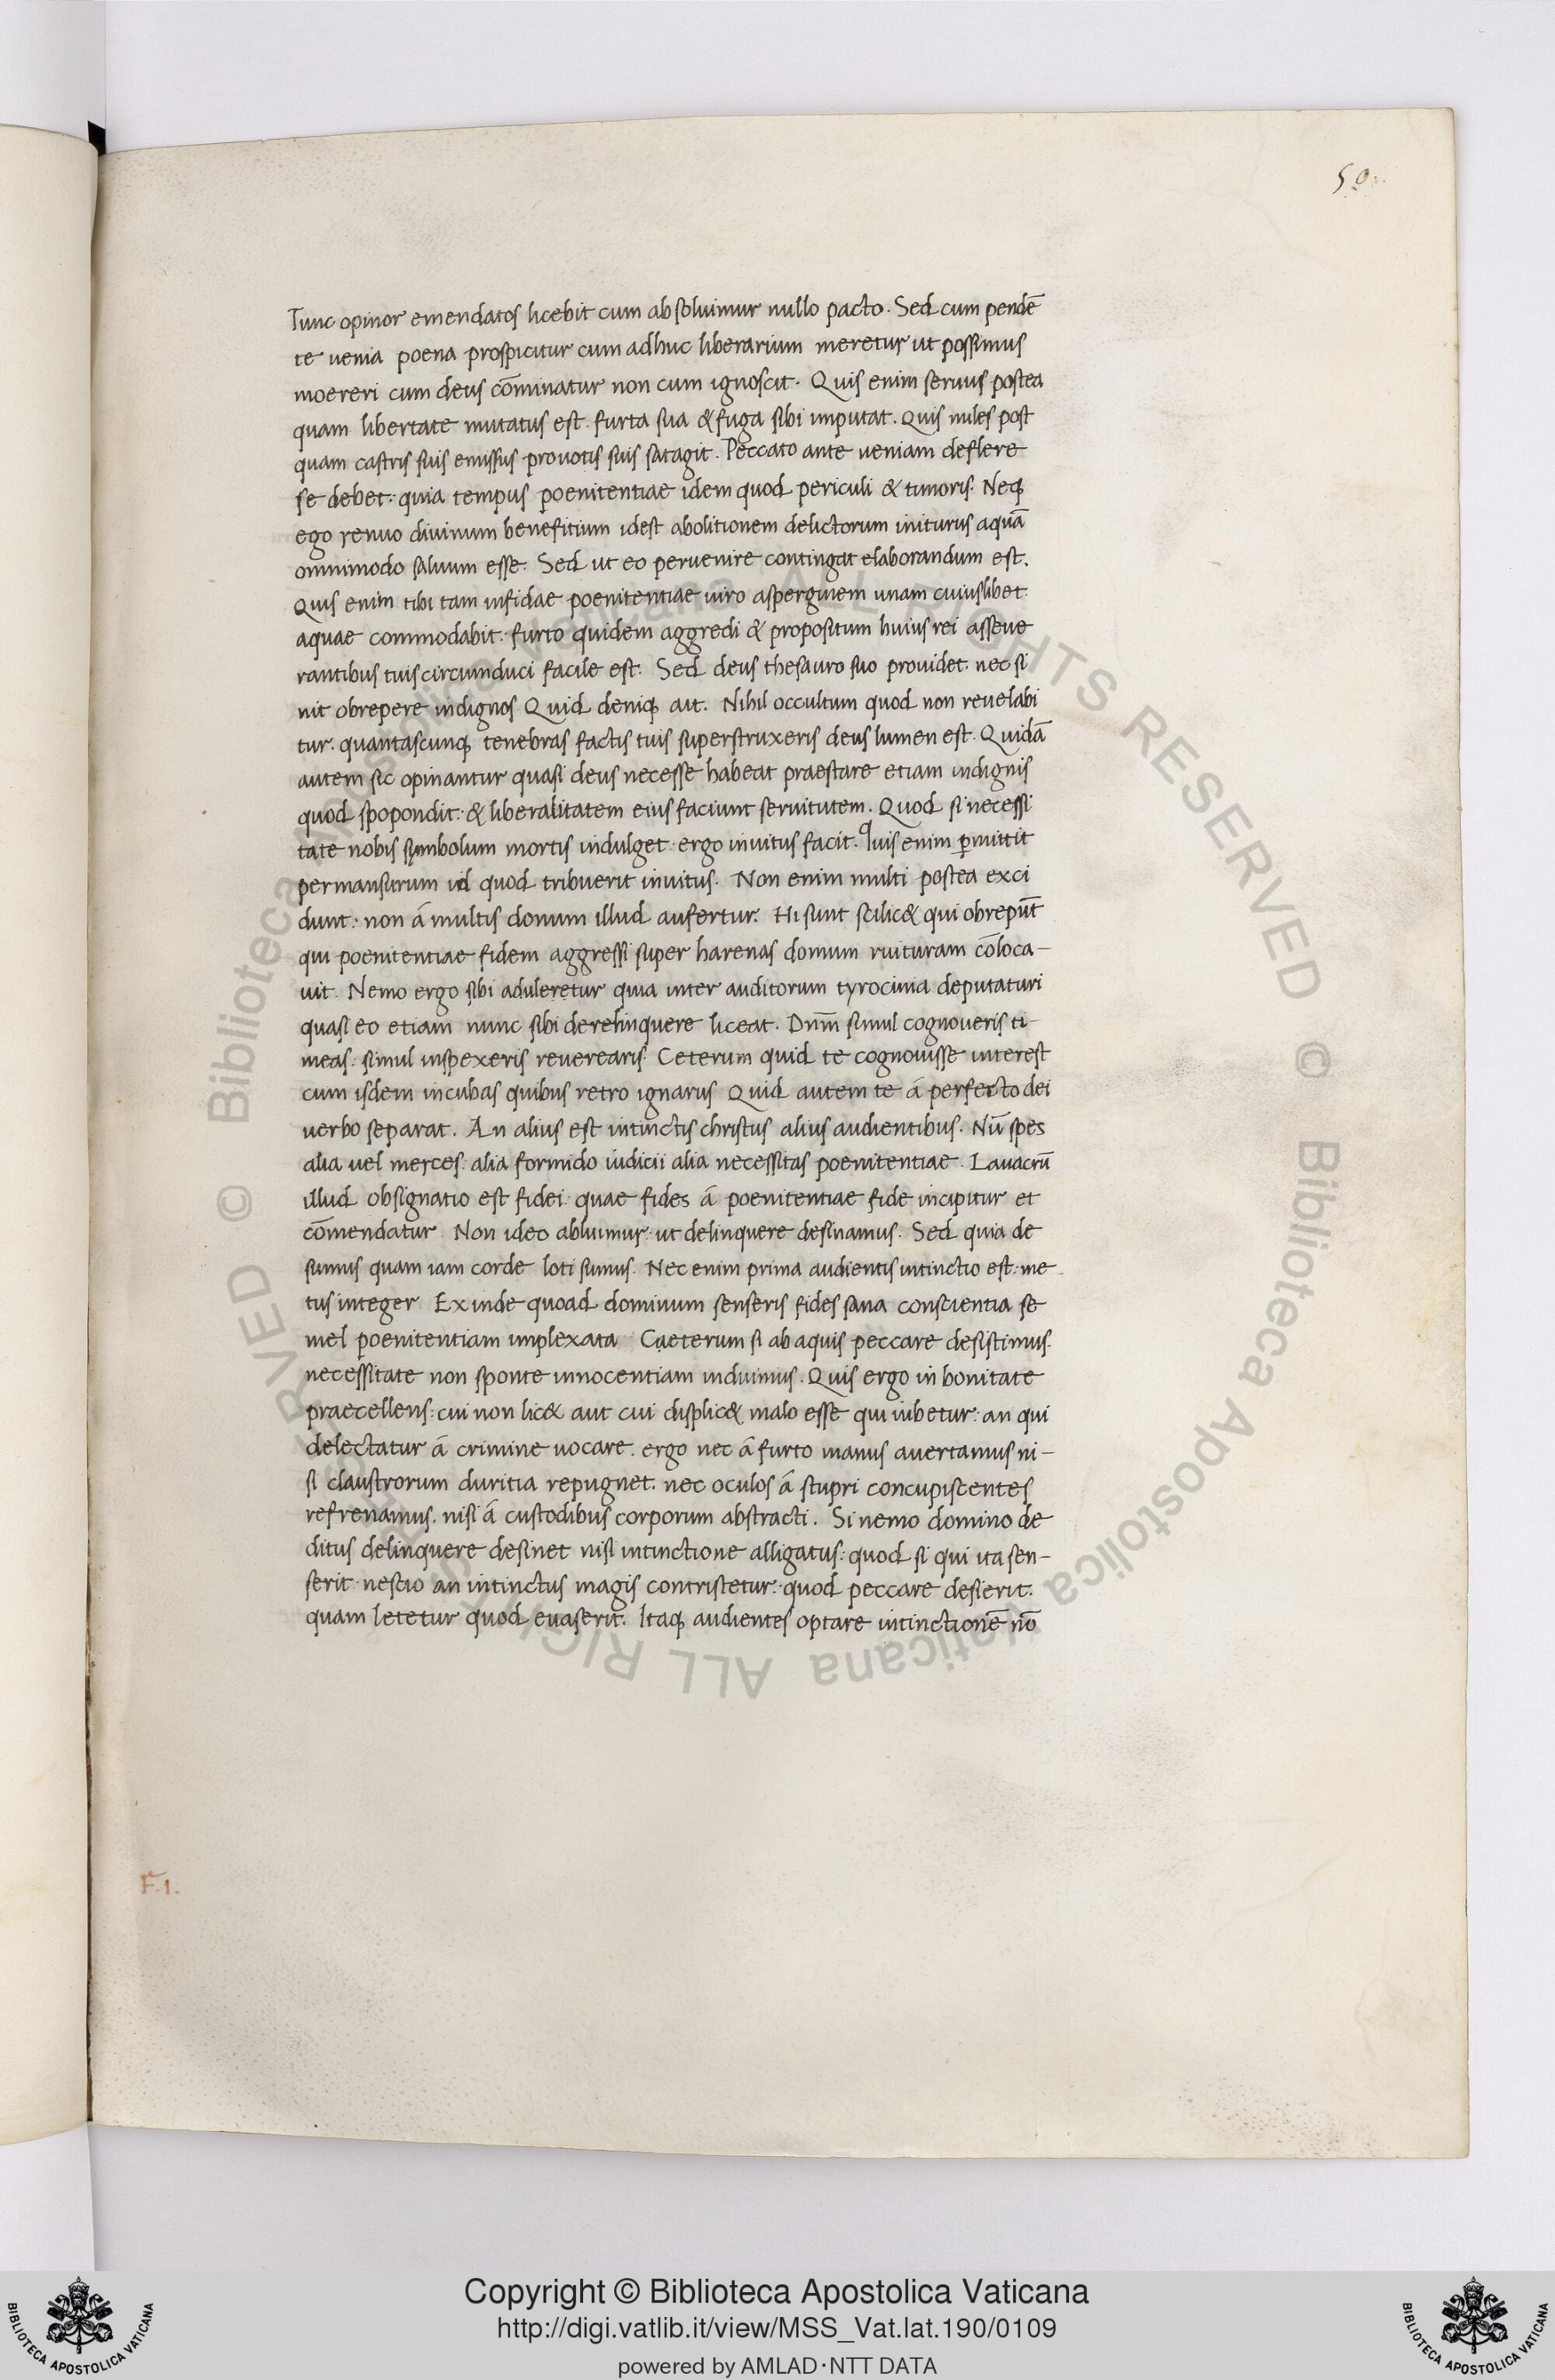 50
Tunc opinor emendatos licebit cum absoluimur nullo pacto. Sed cum pendē
te uenia poena prospicitur cum adhuc liberarium meretur ut possimus
moereri cum deus cōminatur non cum ignoscit. Quis enim seruus postea
quam libertate mutatus est. furta sua & fuga sibi imputat. Quis miles post
quam castris suis emissus prouotis suis satagit. Peccato ante ueniam deflere
se debet: quia tempus poenitentiae idem quod periculi & timoris. Neq;
ego renuo diuinum benefitium idest abolitionem delictorum initurus aquā
omnimodo saluum esse. Sed ut eo peruenire contingat elaborandum est.
Quis enim tibi tam infidae poenitentiae uiro asperginem unam cuiuslibet
aquae commodabit. furto quidem aggredi & propositum huius rei asseue
rantibus tuis circumduci facile est. Sed deus thesauro suo prouidet. nec si
nit obrepere indignos Quid deniq; ait. Nihil occultum quod non reuelabi
tur. quantascunq; tenebras factis tuis superstruxeris deus lumen est. Quidā
autem sic opinantur quasi deus necesse habeat praestare etiam indignis
quod spopondit: & liberalitatem eius faciunt seruitutem. Quod si necessi
tate nobis symbolum mortis indulget ergo inuitus facit. Quis enim p̱mittit
permansurum id quod tribuerit inuitus. Non enim multi postea exci
dunt: non á multis donum illud aufertur. Hi sunt scilic& qui obrepūt
qui poenitentiae fidem aggressi super harenas domum ruituram cōloca-
uit. Nemo ergo sibi aduleretur quia inter auditorum tyrocinia deputaturi
quasi eo etiam nunc sibi derelinquere liceat. Dnm̄ simul cognoueris ti-
meas: simul inspexeris reuerearis. Ceterum quid te cognouisse interest
cum isdem incubas quibus retro ignarus Quid autem te á perfecto dei
uerbo separat. An alius est intinctis christus alius audientibus. Nū spes
alia uel merces: alia formido iudicii alia necessitas poenitentiae. Lauacrū
illud obsignatio est fidei quae fides á poenitentiae fide incipitur et
cōmendatur. Non ideo abluimur: ut delinquere desinamus. Sed quia de
sumus quam iam corde loti sumus. Nec enim prima audientis intinctio est: me
tus integer. Exinde quoad dominum senseris fides sana conscientia se
mel poenitentiam implexata Caeterum si ab aquis peccare desistimus.
necessitate non sponte innocentiam induimus. Quis ergo in bonitate
praecellens: cui non lic& aut cui displic& malo esse qui iubetur: an qui
delectatur á crimine uocare. ergo nec á furto manus auertamus ni-
si claustrorum duritia repugnet. nec oculos á stupri concupiscentes
refrenamus. nisi á custodibus corporum abstracti. Si nemo domino de
ditus delinquere desinet nisi intinctione alligatus: quod si qui ita sen-
serit nescio an intinctus magis contristetur: quod peccare desierit:
quam letetur quod euaserit. Itaq; audientes optare intinctionē nō
F.1.
© Biblioteca Apostolica Vaticana ALL RIGHTS RESERVED © Biblioteca Apostolica Vaticana ALL RIGHTS RESERVED
BIBLIOTECA APOSTOLICA VATICANA
Copyright © Biblioteca Apostolica Vaticana
http://digi.vatlib.it/view/MSS_Vat.lat.190/0109
powered by AMLAD·NTT DATA
BIBLIOTECA APOSTOLICA VATICANA